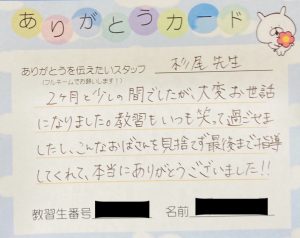 ありがとうカード
ありがとうを伝えたいスタッフ
(フルネームでお願いします!)
杉尾 先生
2ヶ月と少しの間でしたが、大変お世話
になりました。教習もいつも笑って過ごせま
したし、こんなおばさんを見捨てず最後まで指導
してくれて、本当にありがとうございました!!
教習生番号
名前